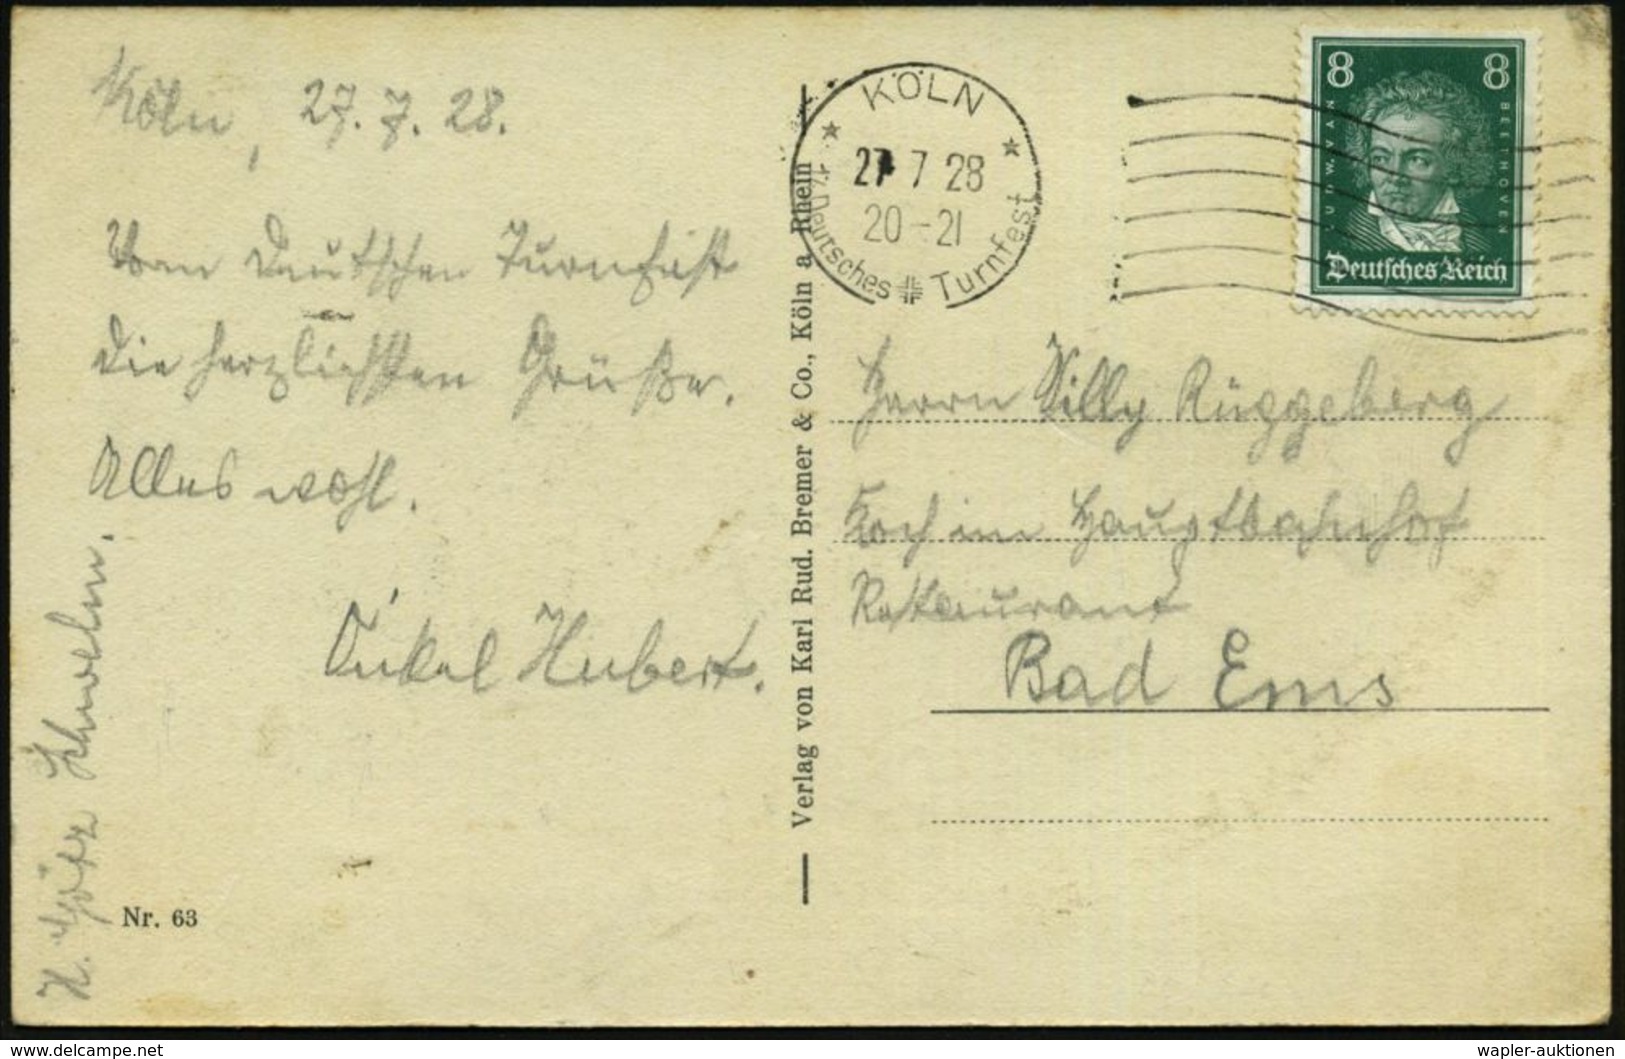 Köln, 27.7.28.
Vom Deutschen Turnfest
die herzlichsten Grüße.
Alles wohl.
Onkel Hubert.
Schwelm.
Nr. 63
Verlag von Karl Rud. Bremer & Co., Köln a. Rhein
KÖLN
27 7 28
20-21
Deutsches Turnfest
8 8
LUDW. VAN
BEETHOVEN
Deutsches Reich
Herrn Willy Rüggeberg
Koch im Hauptbahnhof
Restaurant
Bad Ems
delcampe.net
wapler-auktionen